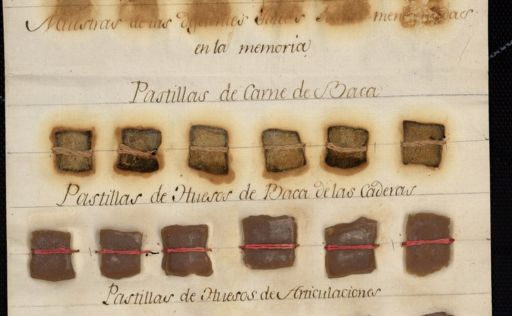 Muestras de las diferentes
en la memoria
Pastillas de Carne de Baca
Pastillas de Huesos de Baca de las Caderas
Pastillas de Huesos de Articulaciones